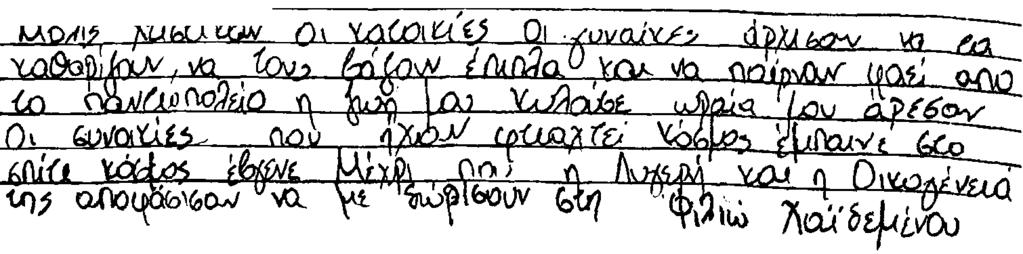 μολις χτιστικαν οι κατοικίες οι γυναίκες άρχισαν να τα
καθαρίζουν, να τους βάζουν έπιπλα και να παίρναν φαεί απο
το παντωπολείο η ζωή μου κυλούσε ωραία μου άρεσαν
οι συνοικίες που ήχαν φτιαχτεί κόσμος έμπαινε στο
σπίτι κόσμος έβγενε Μέχρι που η Λυγερή και η Οικογένειά
της αποφάσισαν να με δώρισουν στη Φιλιώ Χαϊδεμένου